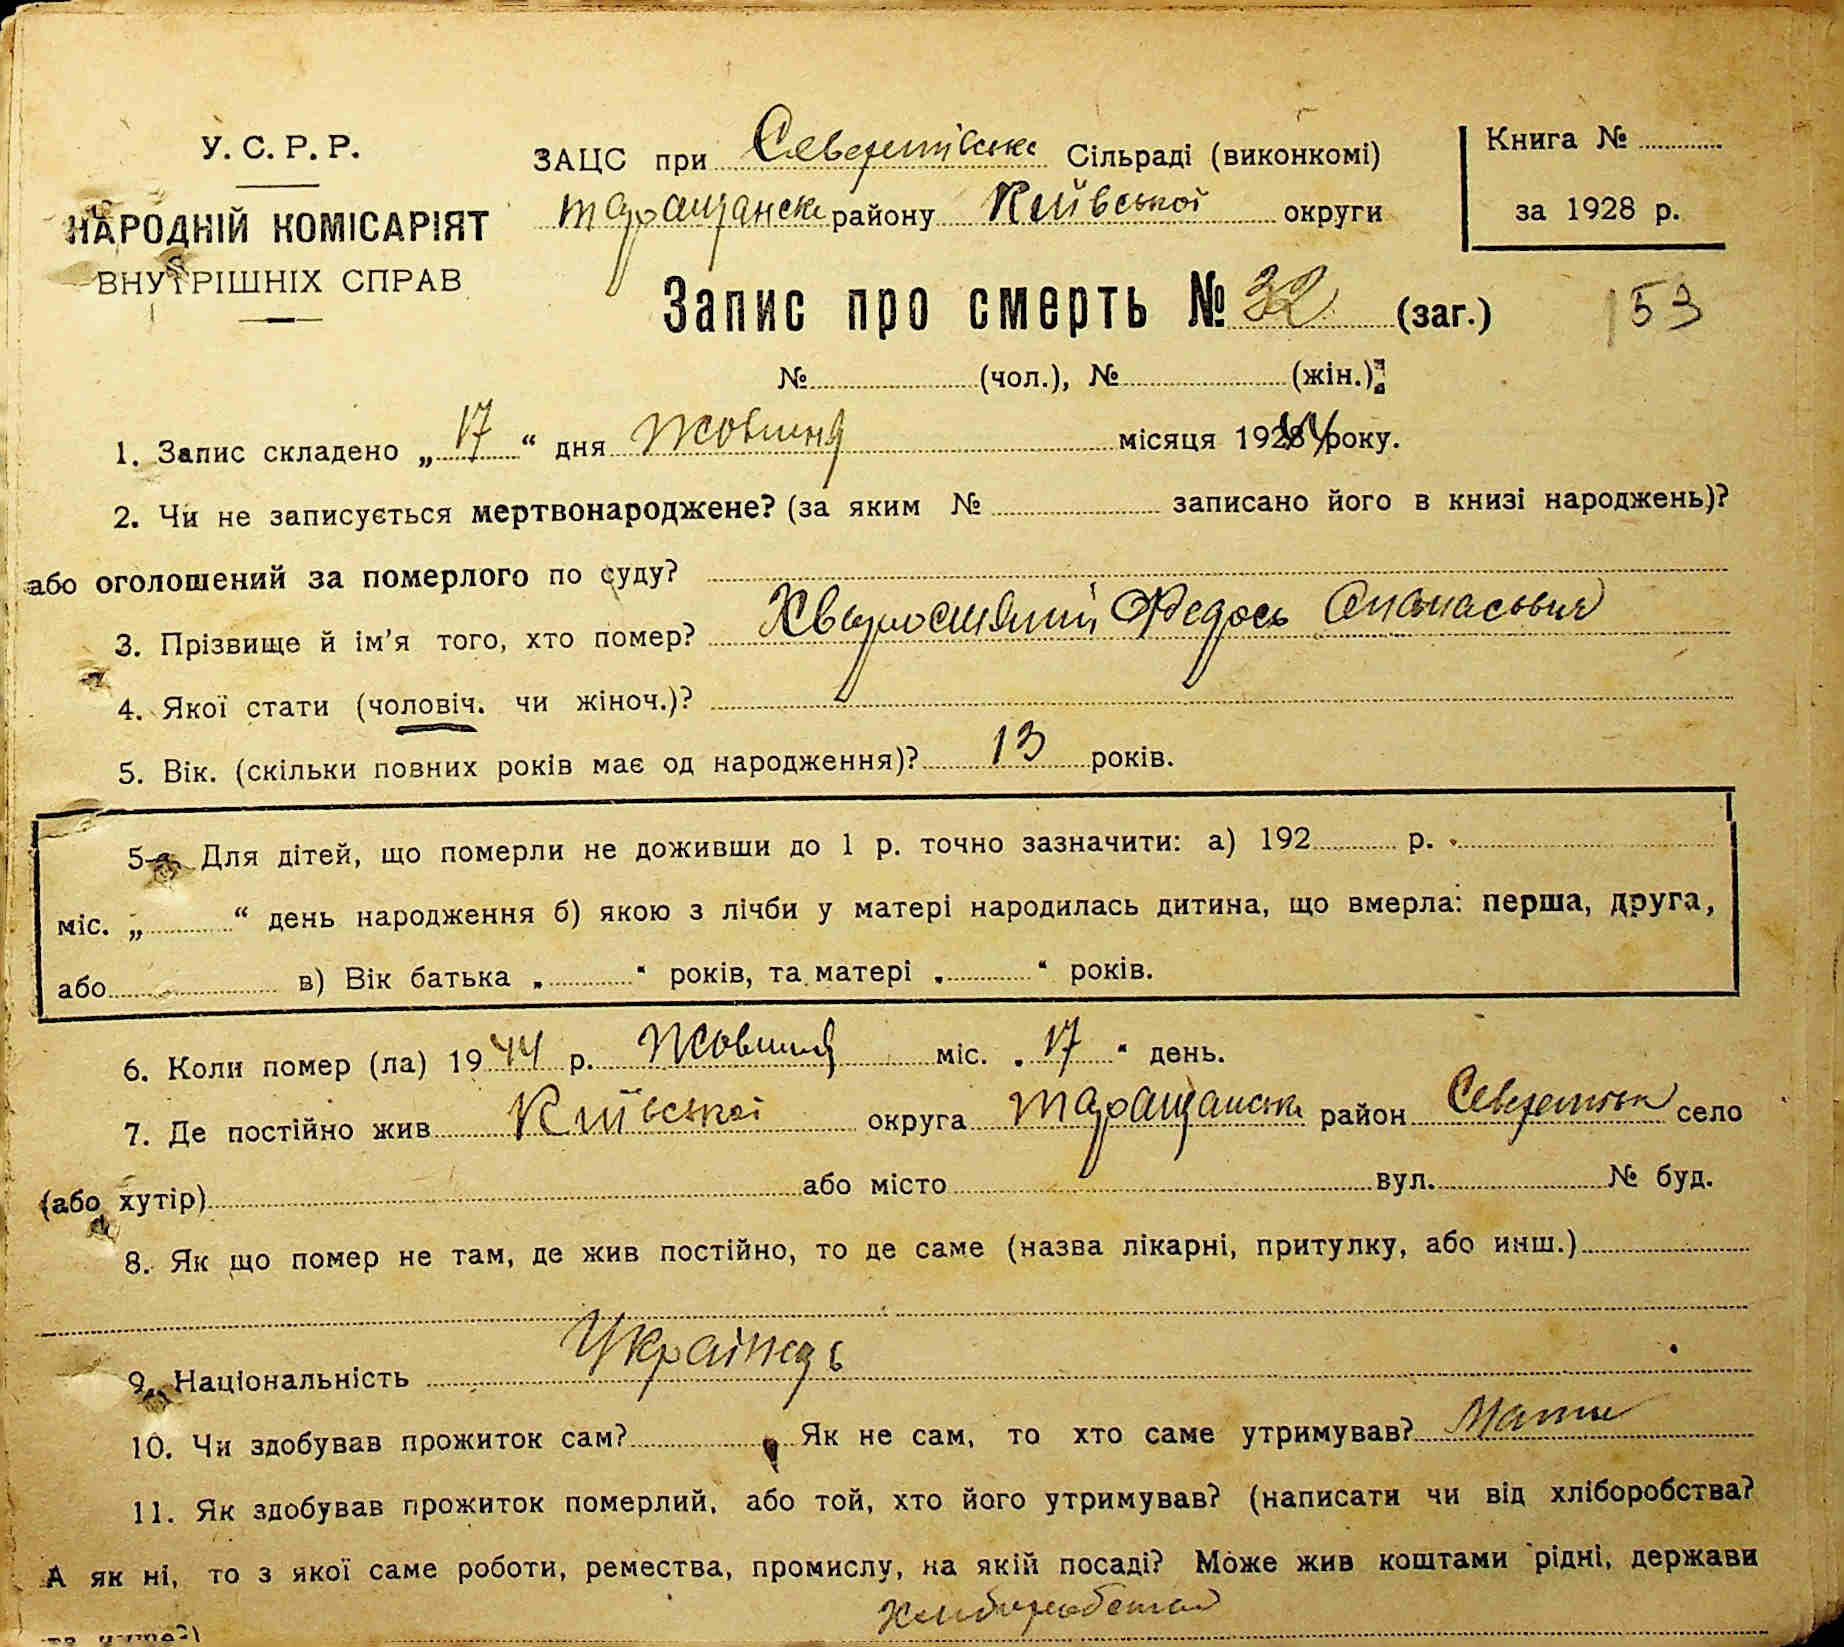 У. С. Р. Р.
НАРОДНІЙ КОМІСАРІЯТ
ВНУТРІШНІХ СПРАВ
ЗАЦС при Северинівське Сільраді (виконкомі)
Таращанск району Київської округи
Книга №
за 1928 р.
Запис про смерть № 32 (заг.)
153
№ (чол.), № (жін.)
1. Запис складено „17“ дня Жовтня місяця 1928 44 року.
2. Чи не записується мертвонароджене? (за яким № записано його в книзі народжень)?
або оголошений за померлого по суду?
3. Прізвище й ім'я того, хто помер? Федось
4. Якої стати (чоловіч. чи жіноч.)?
5. Вік. (скільки повних років має од народження)? 13 років.
5-а. Для дітей, що померли не доживши до 1 р. точно зазначити: а) 192 р.
міс. „ “ день народження б) якою з лічби у матері народилась дитина, що вмерла: перша, друга,
або в) Вік батька „ “ років, та матері „ “ років.
6. Коли помер (ла) 1944 р. Жовтня міс. „17“ день.
7. Де постійно жив Київської округа Таращанск район село
(або хутір) або місто вул. № буд.
8. Як що помер не там, де жив постійно, то де саме (назва лікарні, притулку, або инш.)
9. Національність Українець
10. Чи здобував прожиток сам? Як не сам, то хто саме утримував? Мати
11. Як здобував прожиток померлий, або той, хто його утримував? (написати чи від хліборобства?
А як ні, то з якої саме роботи, ремества, промислу, на якій посаді? Може жив коштами рідні, держави